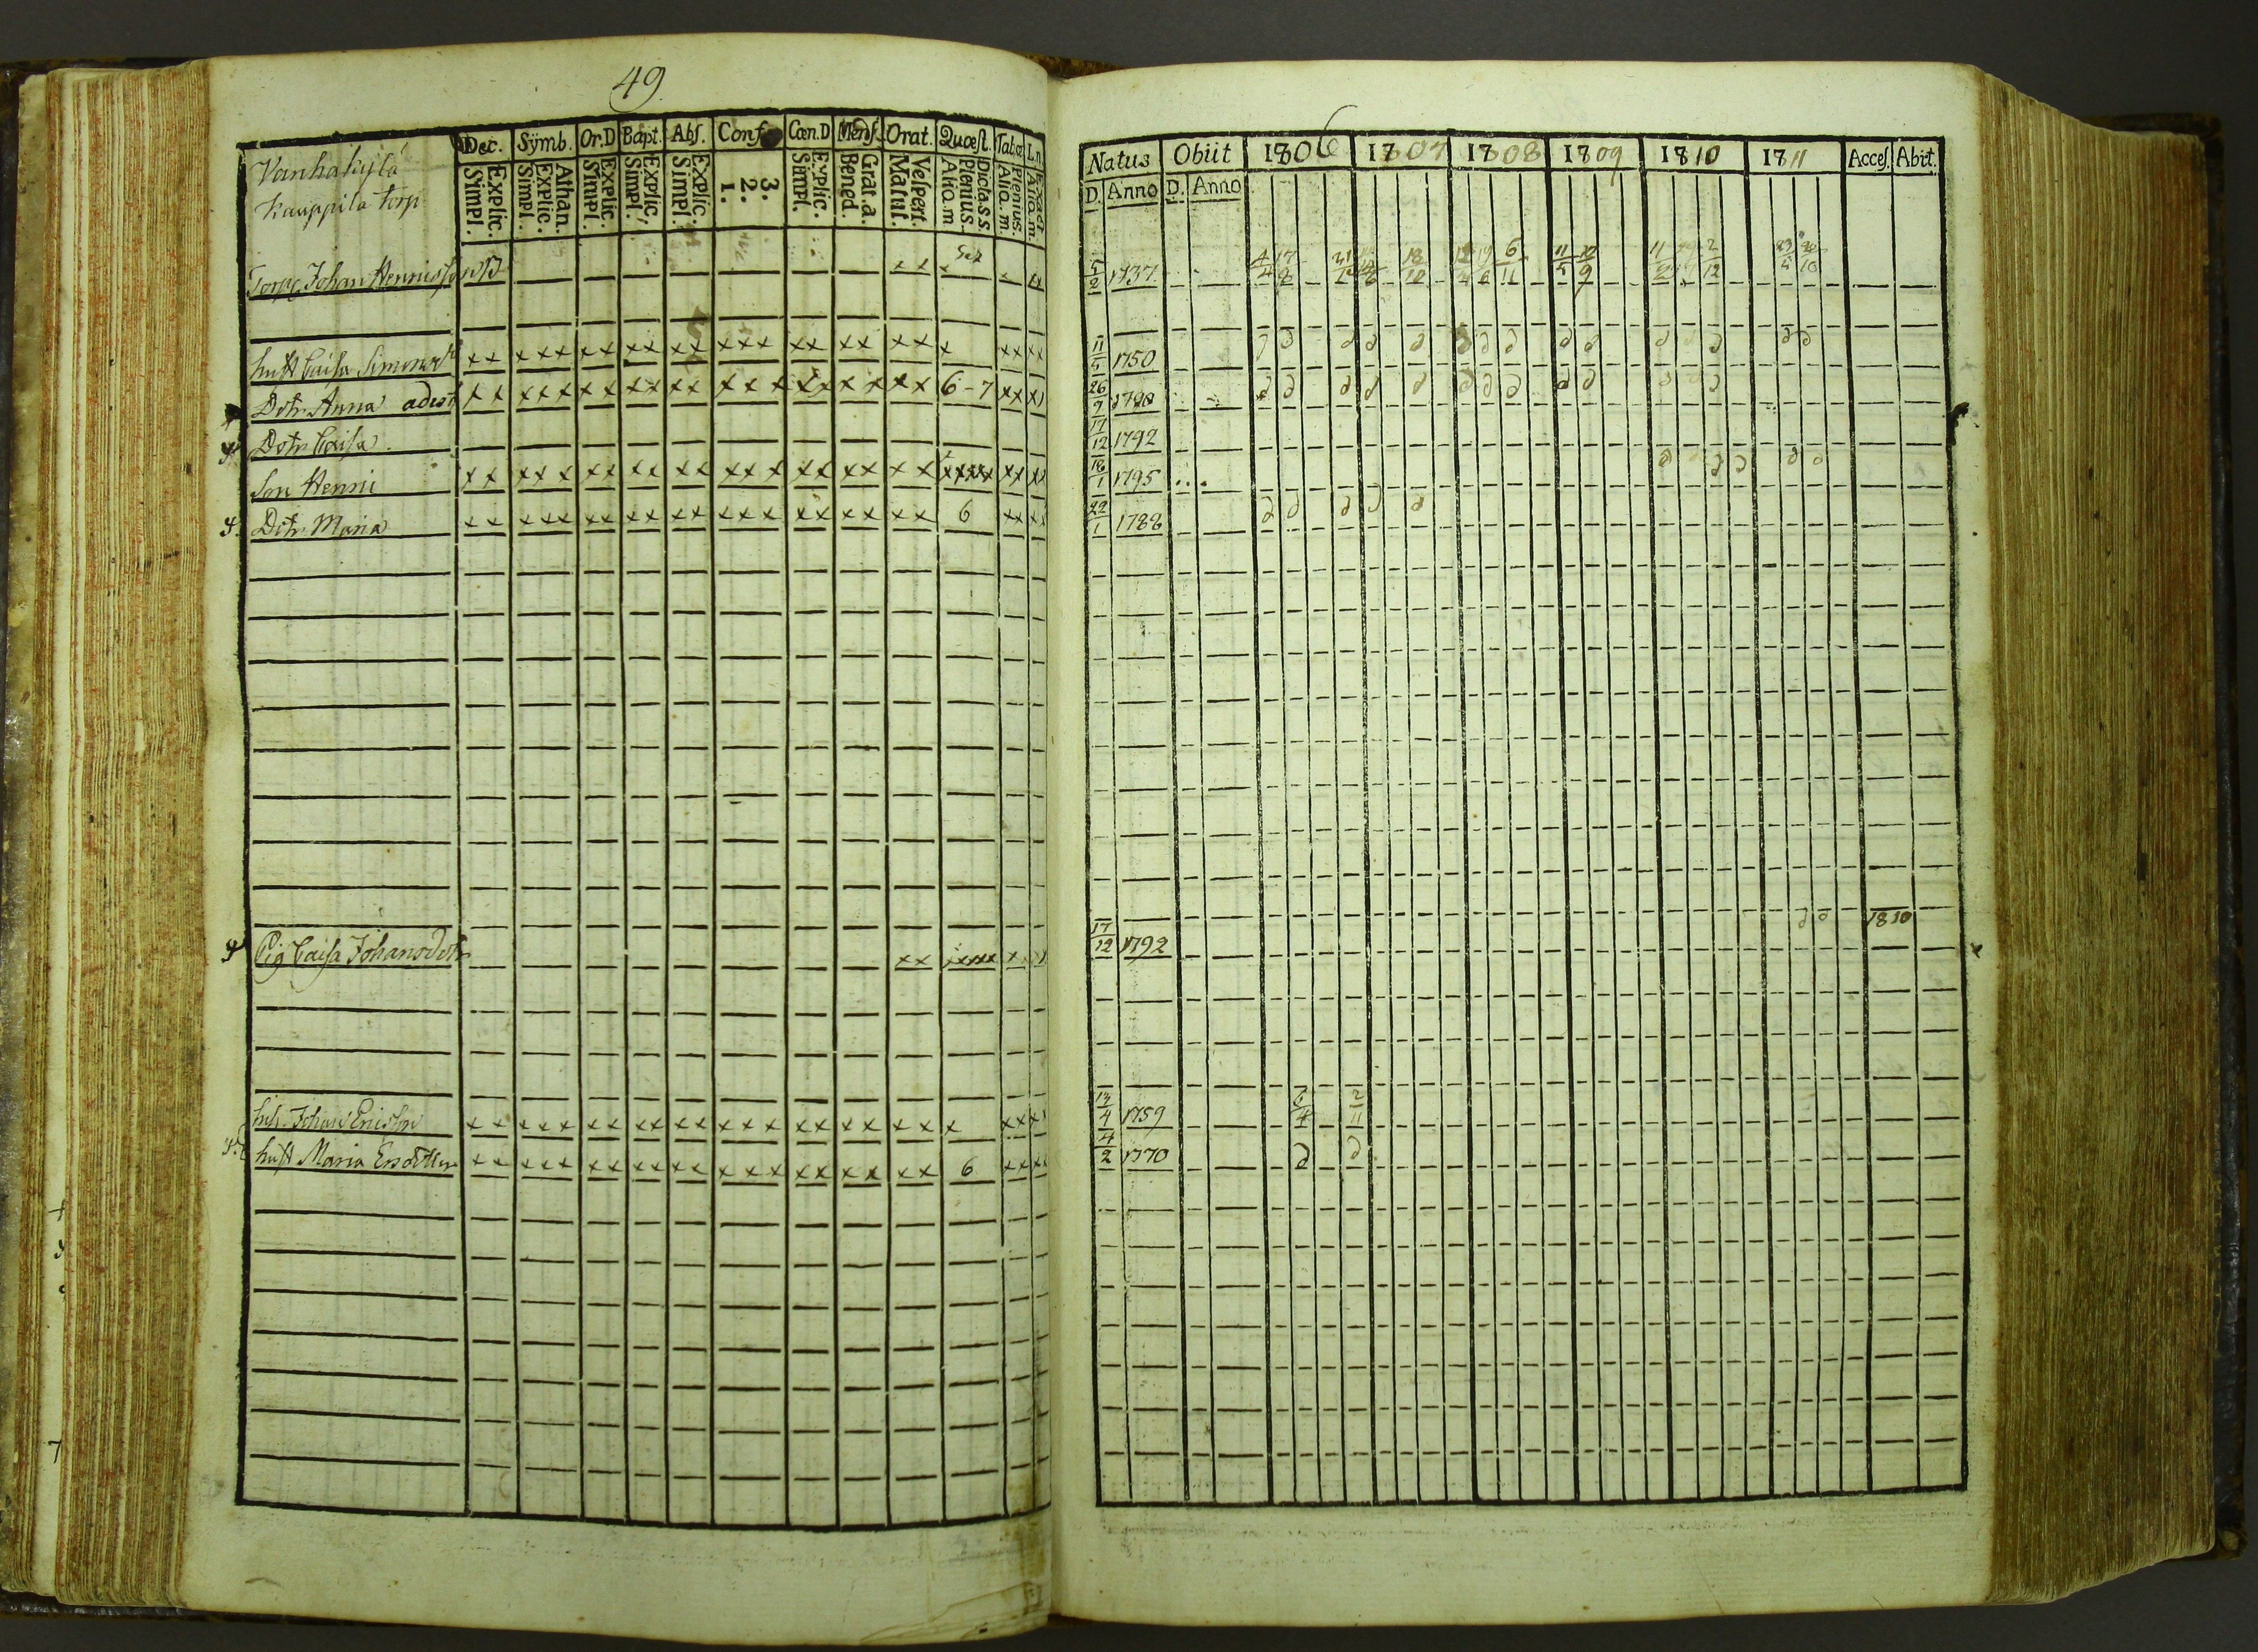 49
Dec. Symb. Or.D Bapt. Abs. Conf. Cœn.D Mens. Orat. Quœst. Tab.œ L.n.
Explic. Simpl. Athan. Explic. Simpl. Explic. Simpl. Explic. Simpl. Explic. Simpl. 3. 2. 1. Explic. Simpl. Grat.a. Bened. Vespert. Matut. Dicta S.S. Plenius. Aliq.m Plenius. Aliq.m. Exact. Aliq.m.
Vanhakylä
Kauppila torp
Torp. Johan Henriss
hust Caisa Simonsdr x x x x x x x x x x x x x x x x x x x x x x x x x x
Dotr Anna adest x x x x x x x x x x x x x x x x x x x x 6-7 x x x
Dotr Caisa
Son Henric x x x x x x x x x x x x x x x x x x x x x x x x x x x x x
Dotr Maria x x x x x x x x x x x x x x x x x x x x 6 x x x x
Pig Caisa Johansdotr x x x x x x x x
Inh. Johan Ericsson x x x x x x x x x x x x x x x x x x x x x x x x x
hust Maria Ersdotter x x x x x x x x x x x x x x x x x x x x 6 x x x x
Natus Obiit 1806 1807 1808 1809 1810 1811 Acces. Abit.
D. Anno D. Anno
5/2 1737 4/4 17/8 18/12 6/11 11/5 10/9 11/2 2/12
11/5 1750
26/7 1780
17/12 1792
18/1 1795
22/1 1788
17/12 1792 1810
13/4 1759 6/4 2/11
4/2 1770